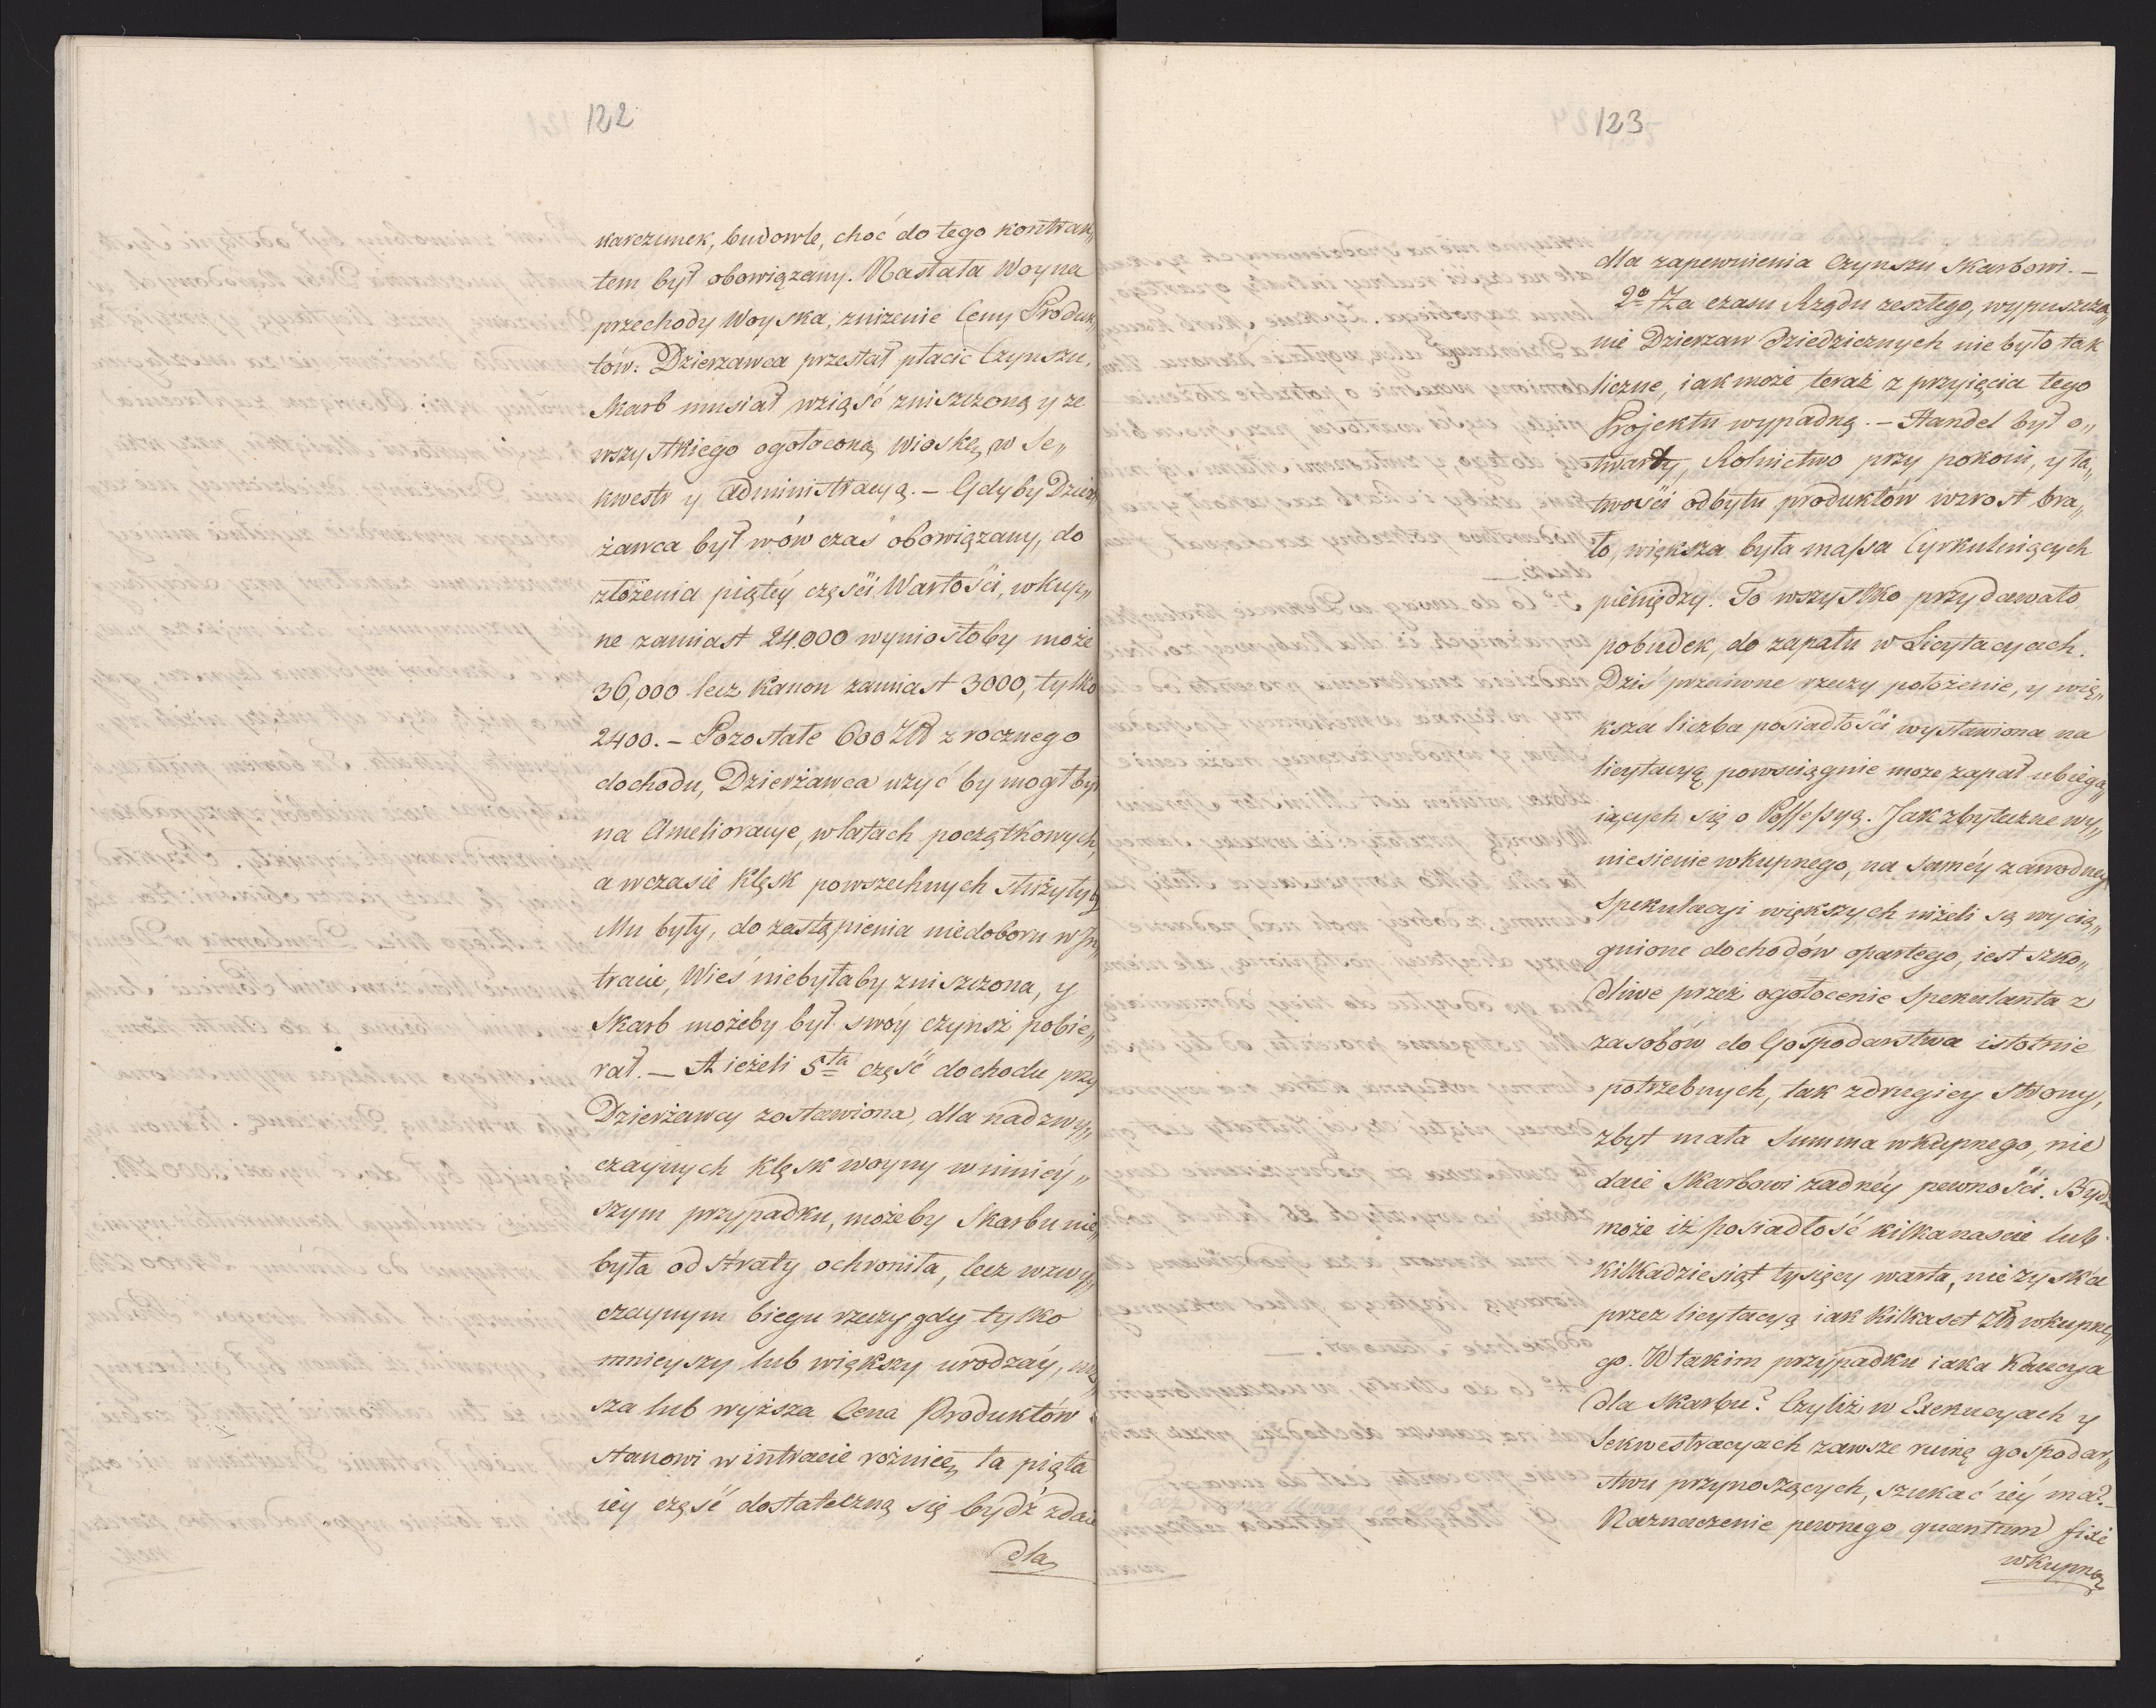 122
karczunek, budowle, choć do tego kontrak„
tem był obowiązany. Nastała Woyna
przechody Woyska, zniżenie Ceny Produk„
tów: Dzierzawca przestał płacić Czynszu,
Skarb musiał wziąść zniszczoną y ze
wszystkiego ogołoconą wioskę, w Se„
kwestr y Administracyą. – Gdyby Dzier„
żawca był wówczas obowiązany, do
złożenia piątéy części Wartości, wkup„
ne zamiast 24.000 wyniosłoby może
36,000 lecz Kanon zamiast 3000, tylko
2400. – Pozostałe 600 Zł z rocznego
dochodu, Dzierżawca użyć by mogł był
na Amelioracye, w latach początkowych,
a w czasie klęsk powszechnych służyłyby
Mu były, do zastąpienia niedoboru w In„
tracie, Wieś niebyłaby zniszczona, y
Skarb możeby był swóy czynsz pobie„
rał. – A ieżeli 5ta część dochodu przy
Dzierżawcy zostawiona, dla nadzwy„
czaynych klęsk woyny w niniéy„
szym przypadku, możeby Skarbu nie„
była od straty ochroniła, lecz w zwy„
czaynym biegu rzeczy, gdy tylko
mnieyszy lub większy urodzáy,
sza lub wyższa Cena Produktów
stanowi w intracie rożnicę, ta piąta
iéy część dostateczną się bydź zdaie
dla
123
dla zapewnienia Czynszu Skarbowi. –
2o Za czasu Rządu zeszłego, wypuszcza„
nie Dzierzaw Dziedzicznych nie było tak
liczne, iak może teraź z przyięcia tego
Projektu wypadną. – Handel był o„
twarty, Rolnictwo przy pokoiu, y ła„
twości odbytu produktów wzrost bra„
ło, większa była massa Cyrkuluiących
pieniędzy. To wszystko przydawało
pobudek, do zapału w Licytacyach.
Dziś przeciwne rzeczy położenie, y wię„
ksza liczba posiadłości wystawiona na
licytacyą powściągnie moze zapał ubiega„
iących się o Possessyą. Jak zbyteczne wy„
niesienie wkupnego, na saméy zawodney
Spekulacyi większych niżeli są wycią„
gnione dochodów opartego, iest szko„
dliwe przéz ogołocenie Spekulanta z
zasobów do Gospodarstwa istotnie
potrzebnych, tak zdrugiey strony,
zbyt mała Summa wkupnego, nie
daie Skarbowi żadnéy pewności. Bydź
może iż posiadłość kilkanaście lub
kilkadziesiąt tysięcy warta, nie zyska
przez licytacyą iak kilkaset Zł wkupne„
go. W takim przypadku iaka Kaucya
dla Skarbu? Czyliż w Exekucyach y
Sekwestracyach zawsze ruinę gospodar„
stwu przynoszących, szukać iéy ma?
Naznaczenie pewnego quantum fixe
wkupnego